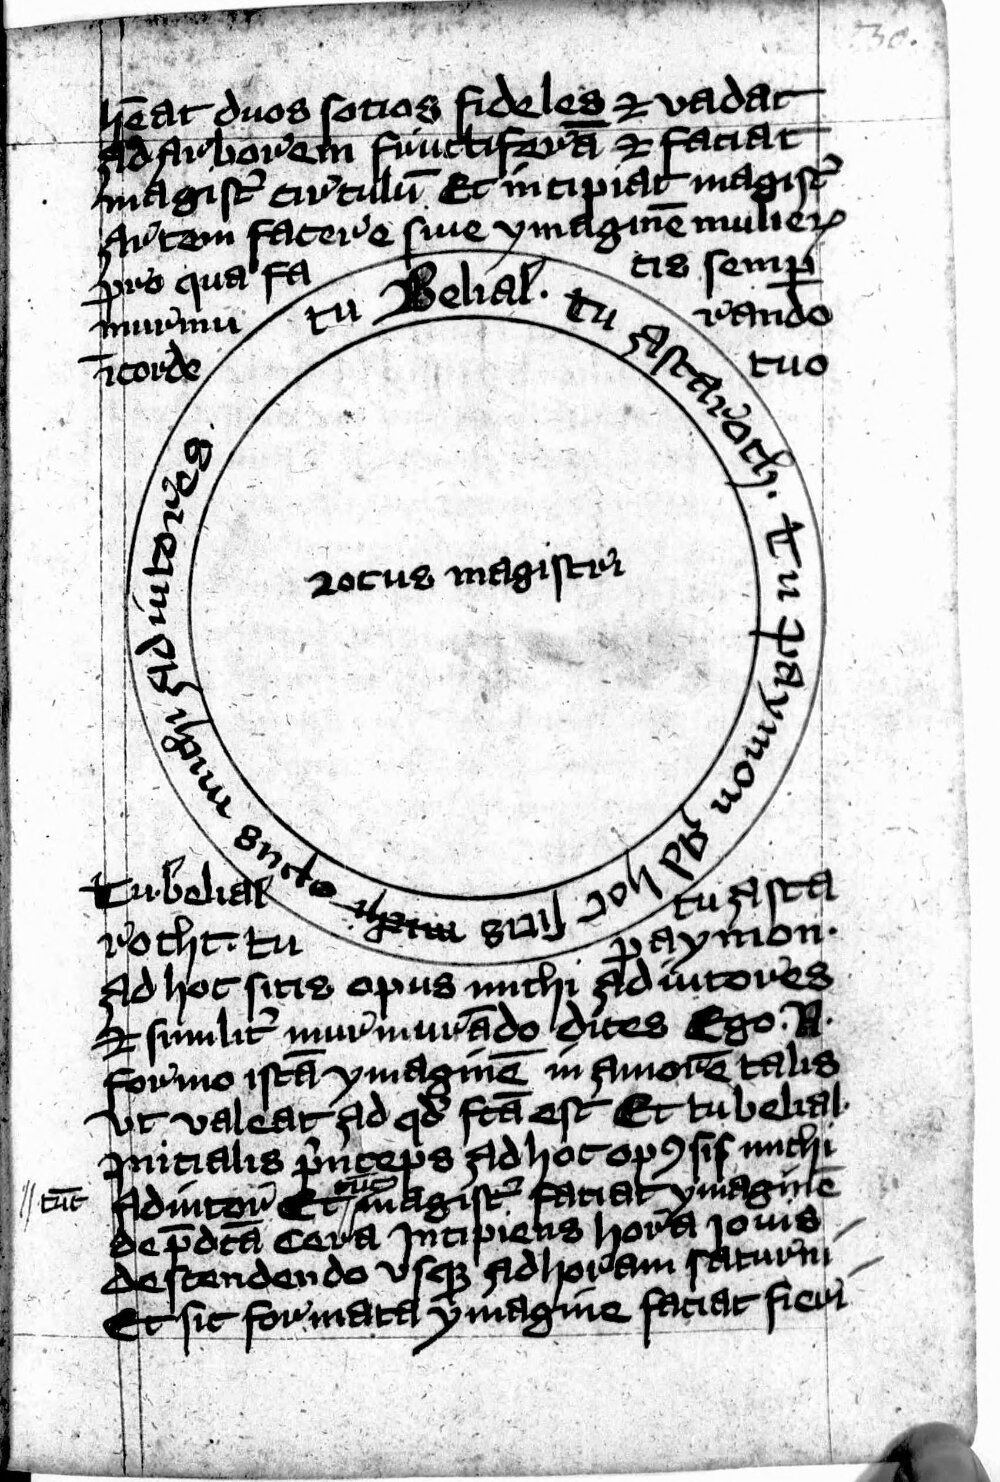 30.
hēat duos socios fideles et vadat
ad arborem fructiferā et faciat
magistr̄ circulū Et incipiat magistr̄
artem facere siue ymaginē mulieꝝ
pro qua fa cis semꝑ
murmu rando
ī corde tuo
tu Belial. tu Astaroth. Tu Paymon ad hoc sitis michi. opus michi adiutores
Locus magistri
Tu belial tu asta
roth. tu paymon.
ad hoc sitis opus michi adiutores
et similit̄ murmurādo dices Ego .N.
formo istā ymaginē in amorē talis
vt valeat ad qđ fc̄a est Et tu belial
Inicialis p̄nceps ad hoc opꝰ sis michi
tūc
adiutor Et tūc magistr̄ faciat ymaginē
de p̄dc̄a cera Incipiens hora Iouis
descendendo vsqꝫ ad horam saturni
Et sic formata ymagine faciat fieri